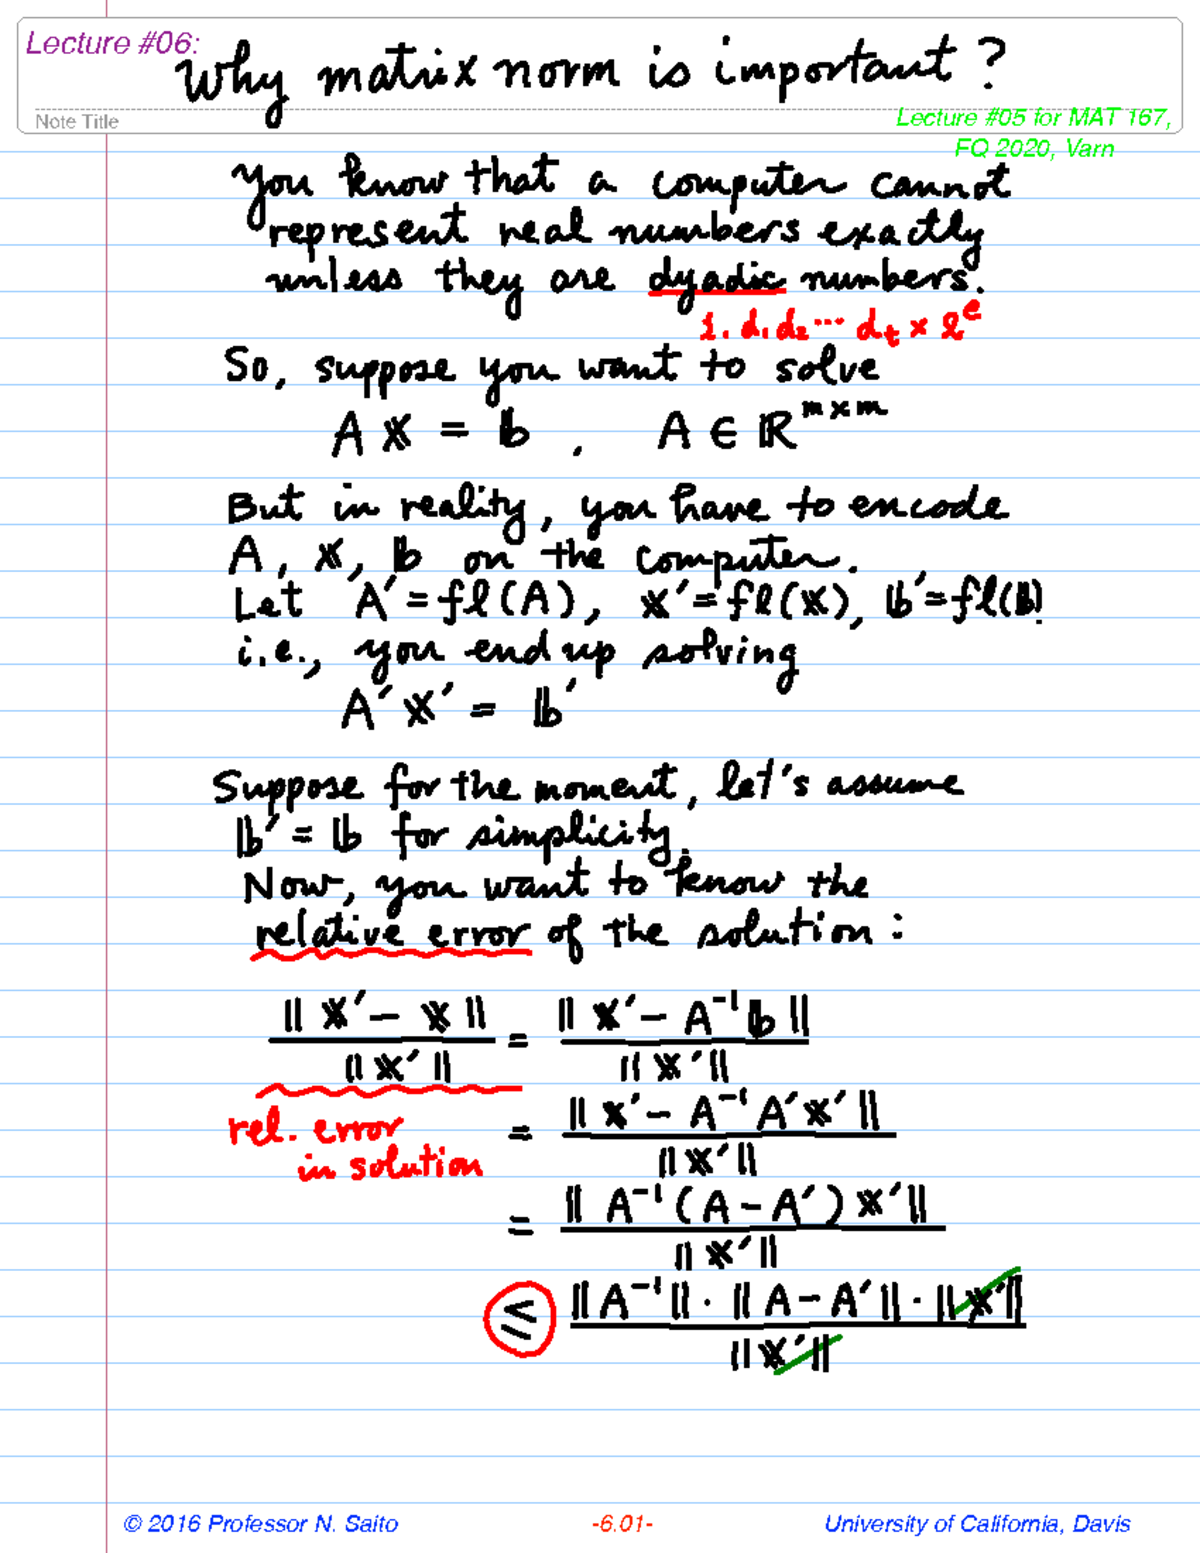 Lecture #06:
Why matrix norm is important?
Note Title
Lecture #05 for MAT 167,
FQ 2020, Varn
You know that a computer cannot
represent real numbers exactly
unless they are dyadic numbers.
1.d₁d₂⋯d_t × 2^e
So, suppose you want to solve
A𝕩 = 𝕓 , A ∈ ℝ^{m×m}
But in reality, you have to encode
A, 𝕩, 𝕓 on the computer.
Let A′ = fl(A), 𝕩′ = fl(𝕩), 𝕓′ = fl(𝕓).
i.e., you end up solving
A′𝕩′ = 𝕓′
Suppose for the moment, let's assume
𝕓′ = 𝕓 for simplicity.
Now, you want to know the
relative error of the solution :
‖𝕩′ − 𝕩‖ / ‖𝕩′‖ = ‖𝕩′ − A⁻¹𝕓‖ / ‖𝕩′‖
rel. error
in solution
= ‖𝕩′ − A⁻¹A′𝕩′‖ / ‖𝕩′‖
= ‖A⁻¹(A − A′)𝕩′‖ / ‖𝕩′‖
≤ ‖A⁻¹‖ · ‖A − A′‖ · ‖𝕩′‖ / ‖𝕩′‖
© 2016 Professor N. Saito
-6.01-
University of California, Davis